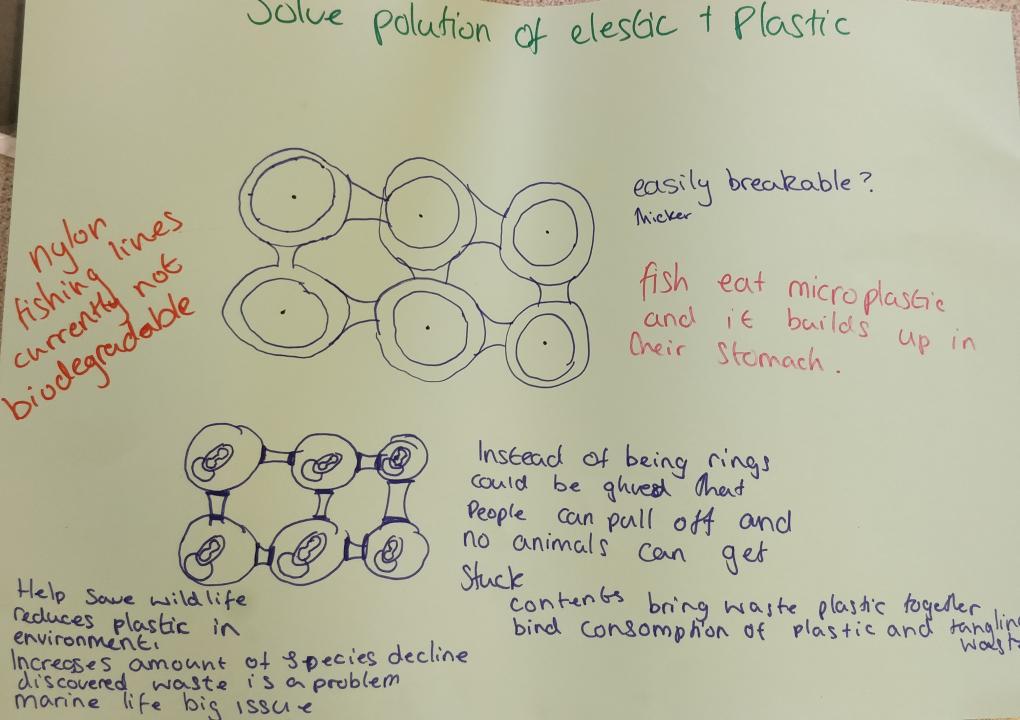 Solve polution of elestic + Plastic
easily breakable?
thicker
nylon
fishing lines
currently not
biodegradable
fish eat microplastic
and it builds up in
their stomach.
Instead of being rings
could be glued that
People can pull off and
no animals can get
stuck
contents bring waste plastic together
bind consomption of plastic and tangling
waste
Help save wildlife
reduces plastic in
environment.
Increases amount of species decline
discovered waste is a problem
marine life big issue